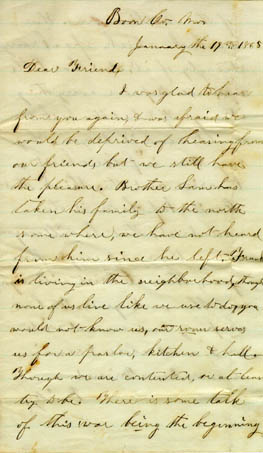 Boon Co. Mo
January the 17
Dear Friend,
I was glad to hear
from you again, I was afraid we
would be deprived of hearing from
our friends but we still have
the pleasure. Brother Sam has
taken his family to the north
some where, we have not heard
from him since he left. Frank
is living in the neighborhood, though
none of us live like we use to do, you
would not know us, one room serves
us for a parlor, kitchen & hall.
Though we are contented, or at least
try to be. There is some talk
of this war being the beginning